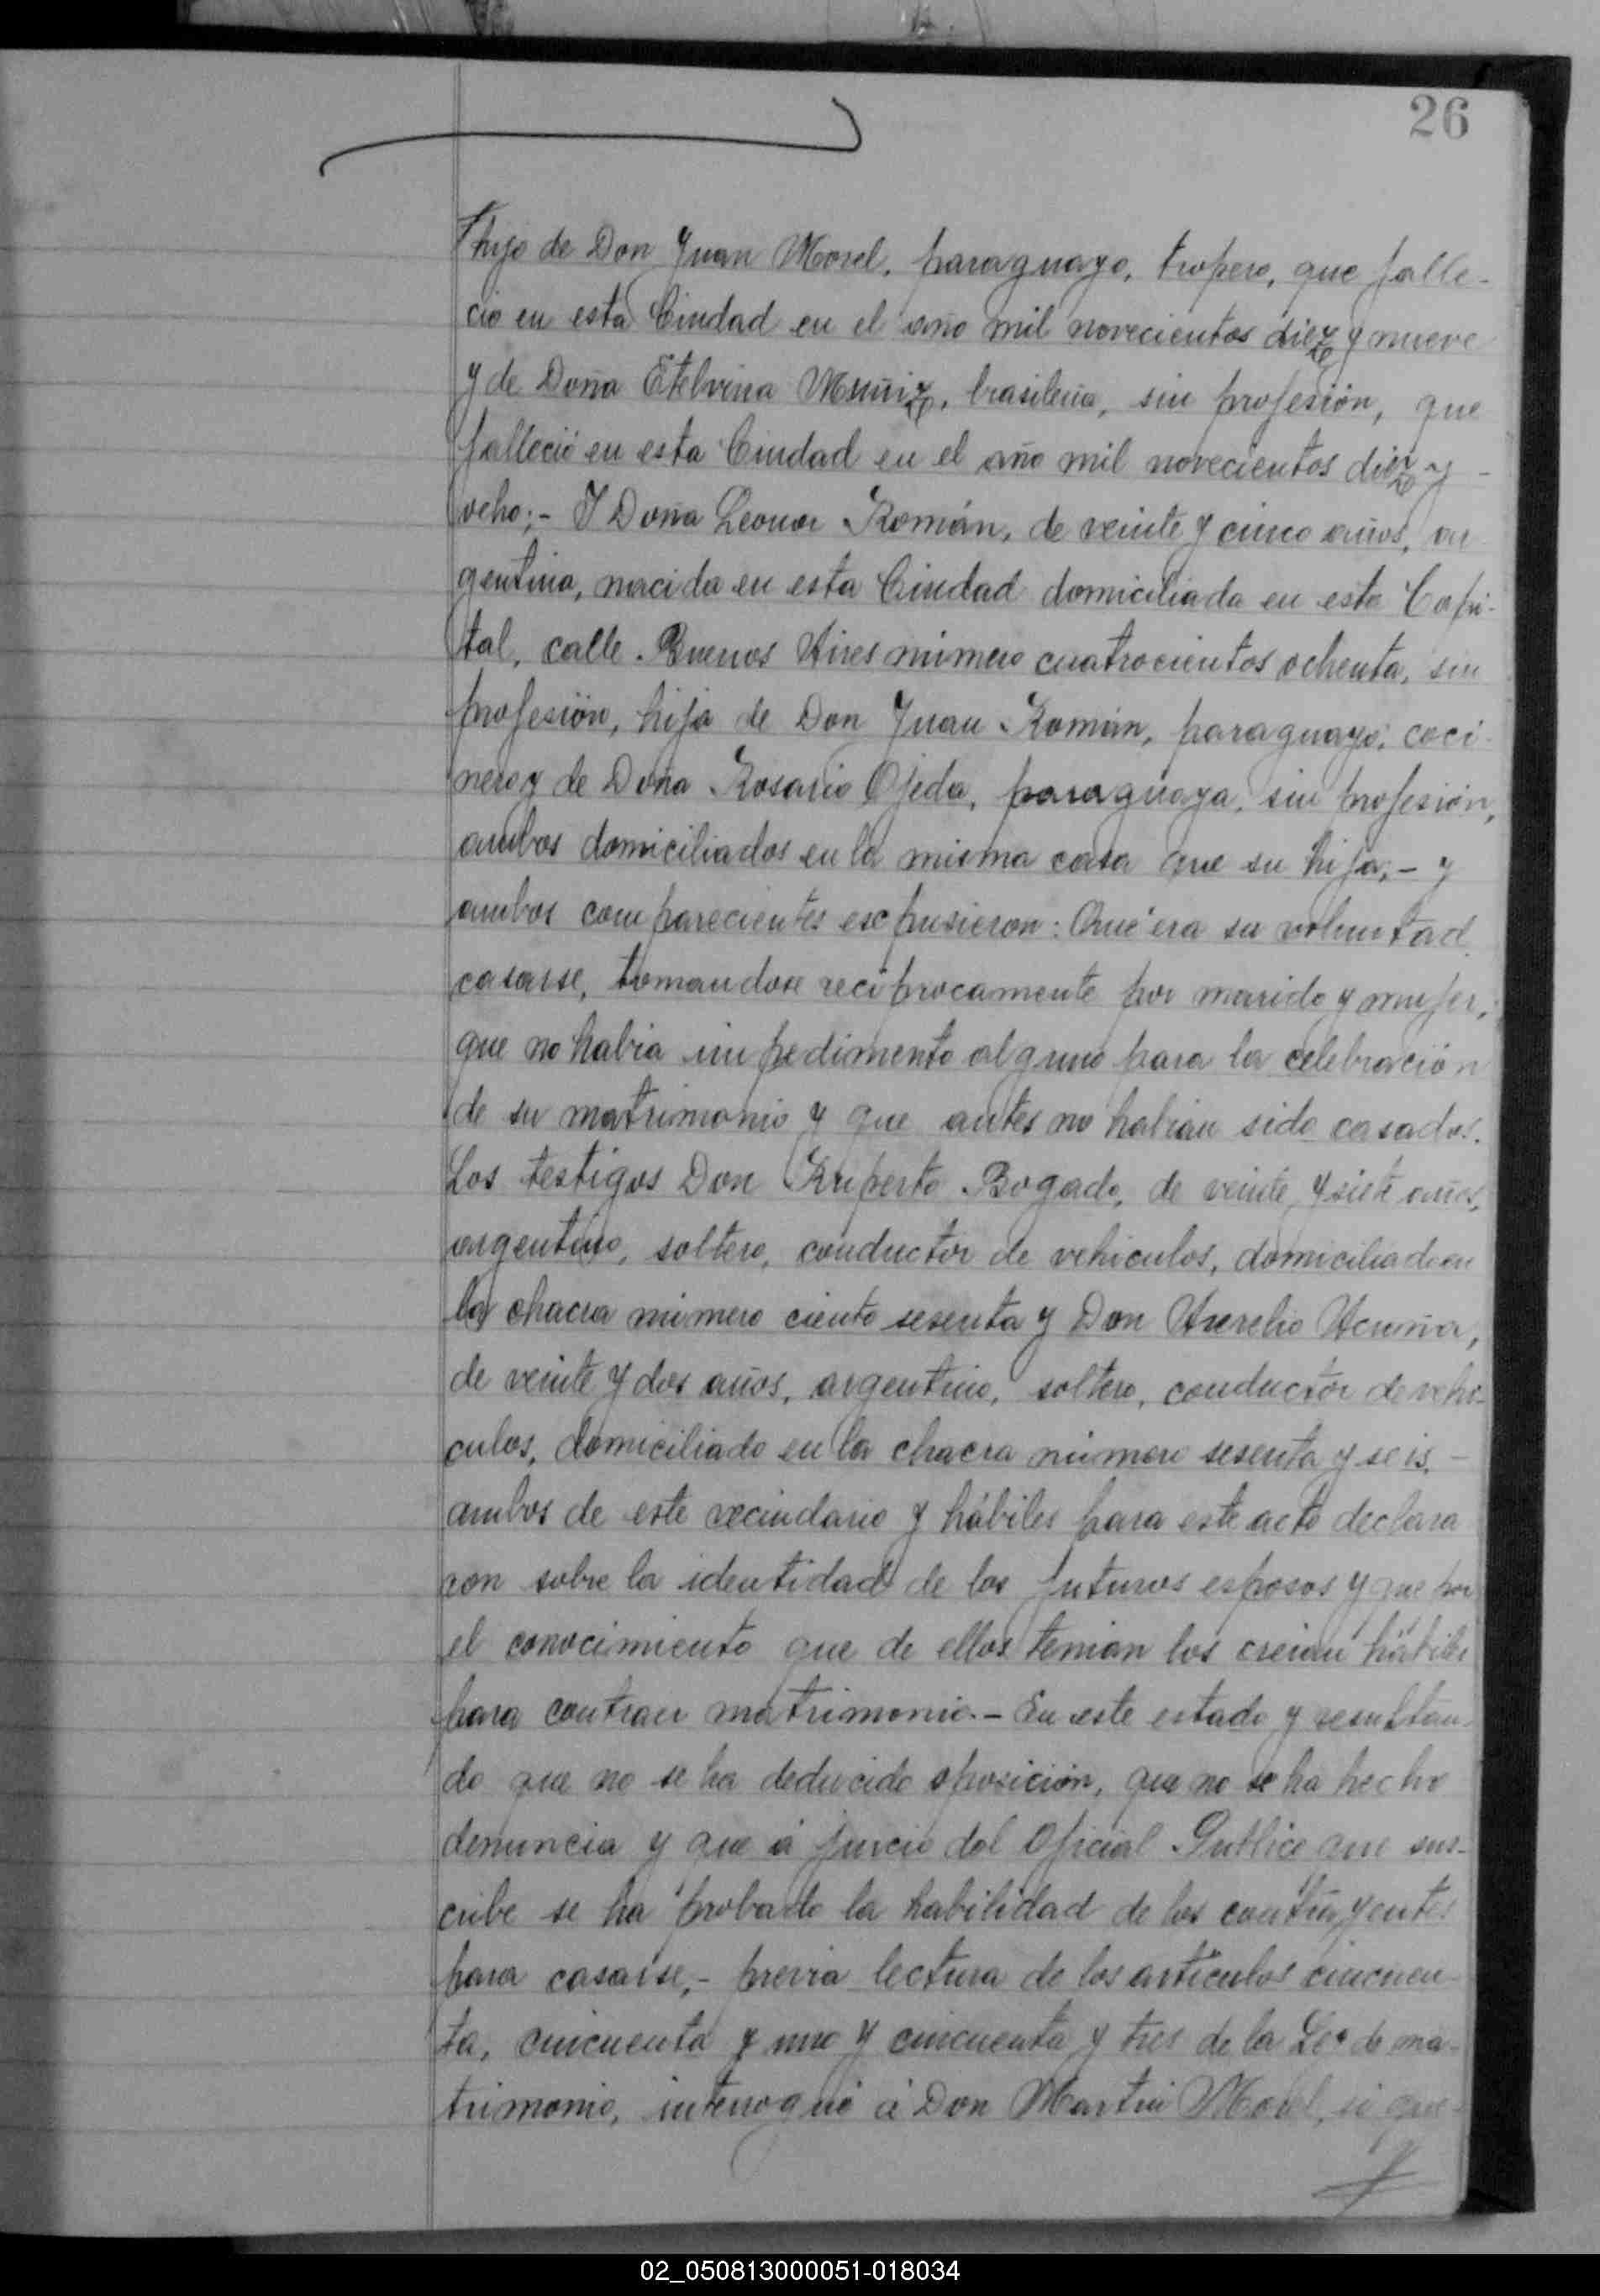 26
hijo de Don Juan Morel, paraguayo, tropero, que falle-
ció en esta Ciudad en el año mil novecientos diez y nueve
y de Doña Etelvina Muñiz, brasileña, sin profesión, que
falleció en esta Ciudad en el año mil novecientos diez y -
ocho;- Y Doña Leonor Román, de veinte y cinco años, ar
gentina, nacida en esta Ciudad domiciliada en esta Capi-
tal, calle Buenos Aires número cuatrocientos ochenta, sin
profesión, hija de Don Juan Román, paraguayo, coci-
nero y de Doña Rosario Ojeda, paraguaya, sin profesión,
ambos domiciliados en la misma casa que su hija;- y
ambos comparecientes expusieron: Que era su voluntad
casarse, tomandose recíprocamente por marido y mujer,
que no habia impedimento alguno para la celebración
de su matrimonio y que antes no habian sido casados.
Los testigos Don Ruperto Bogado, de veinte y siete años,
argentino, soltero, conductor de vehiculos, domiciliado en
la chacra número ciento sesenta y Don Aurelio Acuña,
de veinte y dos años, argentino, soltero, conductor de vehi-
culos, domiciliado en la chacra número sesenta y seis, -
ambos de este vecindario y hábiles para este acto declara
ron sobre la identidad de los futuros esposos y que por
el conocimiento que de ellos tenian los creian hábiles
para contraer matrimonio.- En este estado y resultan-
do que no se ha deducido oposición, que no se ha hecho
denuncia y que á juicio del Oficial Publico que sus-
cribe se ha probado la habilidad de los contrayentes
para casarse,- previa lectura de los artículos cincuen-
ta, cincuenta y uno y cincuenta y tres de la Ley de ma-
trimonio, interrogué á Don Martin Morel, si que-
02_050813000051-018034